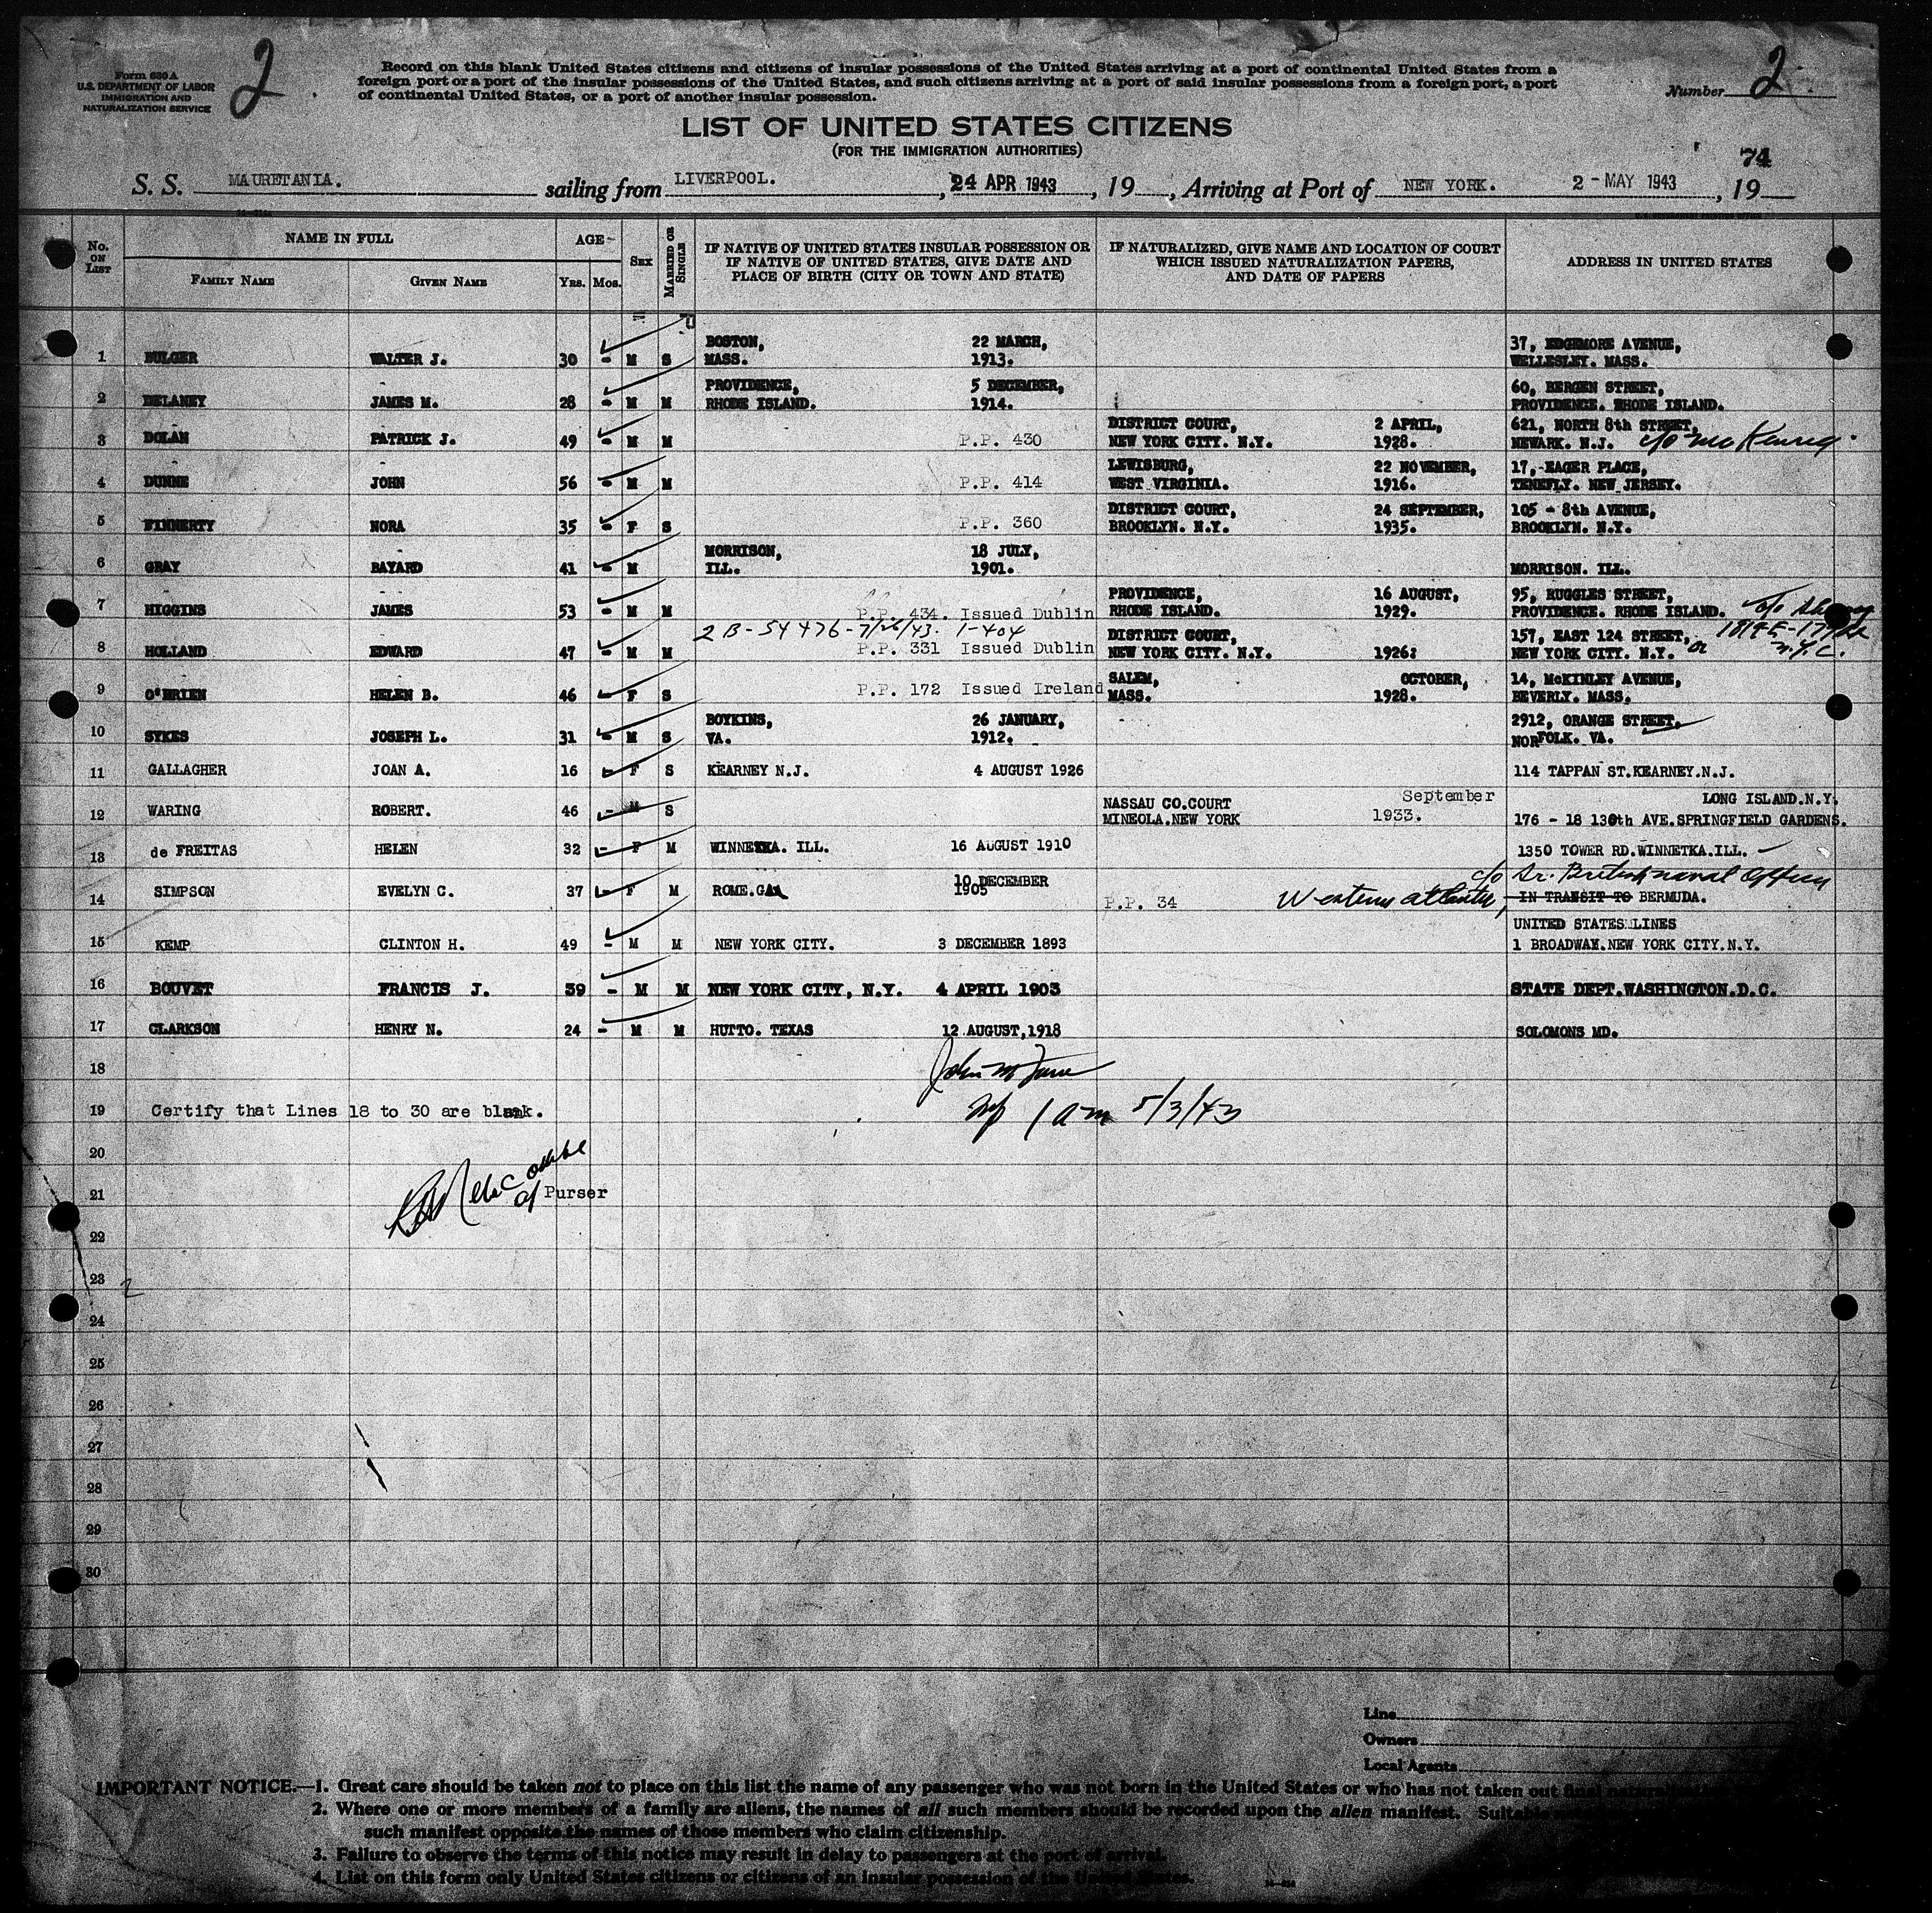 Form 630 A
U.S. DEPARTMENT OF LABOR
IMMIGRATION AND
NATURALIZATION SERVICE
2
Record on this blank United States citizens and citizens of insular possessions of the United States arriving at a port of continental United States from a
foreign port or a port of the insular possessions of the United States, and such citizens arriving at a port of said insular possessions from a foreign port, a port
of continental United States, or a port of another insular possession.
Number 2
LIST OF UNITED STATES CITIZENS
(FOR THE IMMIGRATION AUTHORITIES)
74
S. S. MAURETANIA. sailing from LIVERPOOL. , 24 APR 1943 , 19 , Arriving at Port of NEW YORK. 2 - MAY 1943 , 19
No. ON LIST
NAME IN FULL
FAMILY NAME GIVEN NAME
AGE
YRS. MOS.
SEX
MARRIED OR SINGLE
IF NATIVE OF UNITED STATES INSULAR POSSESSION OR
IF NATIVE OF UNITED STATES, GIVE DATE AND
PLACE OF BIRTH (CITY OR TOWN AND STATE)
IF NATURALIZED, GIVE NAME AND LOCATION OF COURT
WHICH ISSUED NATURALIZATION PAPERS,
AND DATE OF PAPERS
ADDRESS IN UNITED STATES
BOSTON, 22 MARCH, 37, EDGEMORE AVENUE,
1 BULGER WALTER J. 30 - M S MASS. 1913. WELLESLEY. MASS.
PROVIDENCE, 5 DECEMBER, 60, BERGEN STREET,
2 DELANEY JAMES M. 28 - M M RHODE ISLAND. 1914. PROVIDENCE. RHODE ISLAND.
DISTRICT COURT, 2 APRIL, 621, NORTH 8th STREET,
3 DOLAN PATRICK J. 49 - M M P.P. 430 NEW YORK CITY. N.Y. 1928. NEWARK. N.J. c/o
LEWISBURG, 22 NOVEMBER, 17, EAGER PLACE,
4 DUNNE JOHN 56 - M M P.P. 414 WEST VIRGINIA. 1916. TENEFLY. NEW JERSEY.
DISTRICT COURT, 24 SEPTEMBER, 105 - 8th AVENUE,
5 FINNERTY NORA 35 - F S P.P. 360 BROOKLYN. N.Y. 1935. BROOKLYN. N.Y.
MORRISON, 18 JULY,
6 GRAY BAYARD 41 - M ILL. 1901. MORRISON. ILL.
PROVIDENCE, 16 AUGUST, 95, RUGGLES STREET,
7 HIGGINS JAMES 53 - M M P.P. 434. Issued Dublin RHODE ISLAND. 1929. PROVIDENCE. RHODE ISLAND. c/o
2 B-54476-7/26/43. 1-404 DISTRICT COURT, 157, EAST 124 STREET,
8 HOLLAND EDWARD 47 - M M P.P. 331 Issued Dublin NEW YORK CITY. N.Y. 1926: NEW YORK CITY. N.Y. or N.Y.C.
SALEM, OCTOBER, 14, McKINLEY AVENUE,
9 O'BRIEN HELEN B. 46 - F S P.P. 172 Issued Ireland MASS. 1928. BEVERLY. MASS.
BOYKINS, 26 JANUARY, 2912, ORANGE STREET,
10 SYKES JOSEPH L. 31 - M S VA. 1912. NORFOLK. VA.
11 GALLAGHER JOAN A. 16 - F S KEARNEY N.J. 4 AUGUST 1926 114 TAPPAN ST.KEARNEY.N.J.
NASSAU CO.COURT September LONG ISLAND.N.Y.
12 WARING ROBERT. 46 - M S MINEOLA.NEW YORK 1933. 176 - 18 130th AVE.SPRINGFIELD GARDENS.
13 de FREITAS HELEN 32 - F M WINNETKA. ILL. 16 AUGUST 1910 1350 TOWER RD.WINNETKA.ILL.
c/o Sr. British naval Officer
14 SIMPSON EVELYN C. 37 - F M ROME.GA 10 DECEMBER 1905 P.P. 34 Western Atlantic, IN TRANSIT TO BERMUDA.
UNITED STATES LINES
15 KEMP CLINTON H. 49 - M M NEW YORK CITY. 3 DECEMBER 1893 1 BROADWAY.NEW YORK CITY.N.Y.
16 BOUVET FRANCIS J. 39 - M M NEW YORK CITY, N.Y. 4 APRIL 1903 STATE DEPT.WASHINGTON.D.C.
17 CLARKSON HENRY N. 24 - M M HUTTO. TEXAS 12 AUGUST,1918 SOLOMONS MD.
18 John M
19 Certify that Lines 18 to 30 are blank. 1 am 5/3/43
20
21 Purser
22
23
24
25
26
27
28
29
30
Line
Owners
Local Agents
IMPORTANT NOTICE.—1. Great care should be taken not to place on this list the name of any passenger who was not born in the United States or who has not taken out final
2. Where one or more members of a family are aliens, the names of all such members should be recorded upon the alien manifest.
such manifest opposite the names of those members who claim citizenship.
3. Failure to observe the terms of this notice may result in delay to passengers at the port of arrival.
4. List on this form only United States citizens or citizens of an insular possession of the United States.